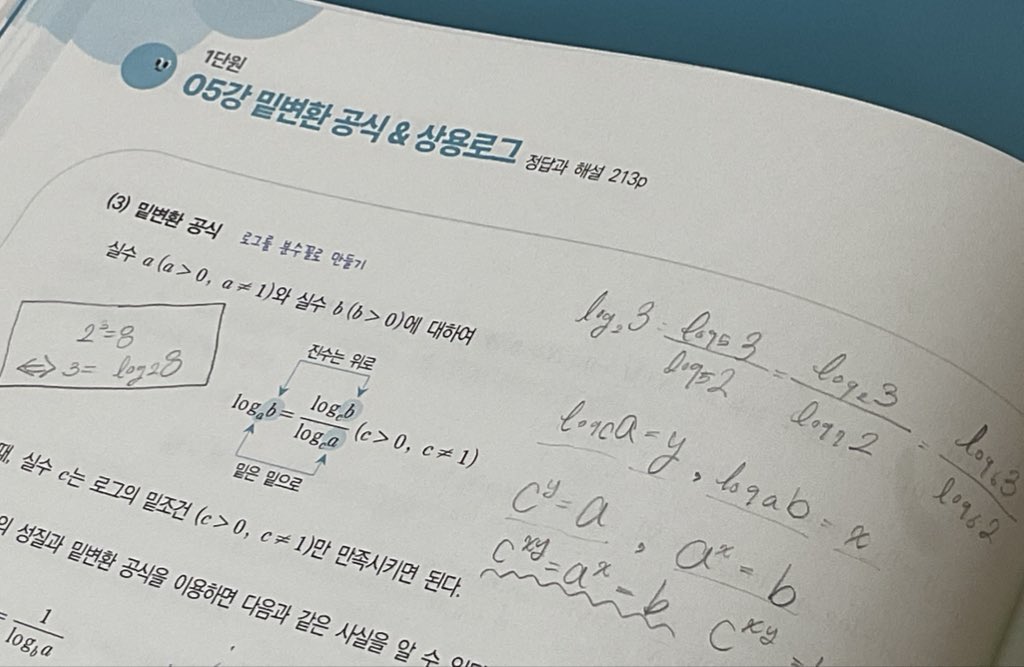 1단원
05강 밑변환 공식 & 상용로그 정답과 해설 213p
(3) 밑변환 공식 로그를 분수꼴로 만들기
실수 a (a > 0, a ≠ 1)와 실수 b (b > 0)에 대하여
2³=8
⟺ 3 = log₂8
진수는 위로
logₐb = log_c b / log_c a (c > 0, c ≠ 1)
밑은 밑으로
때, 실수 c는 로그의 밑조건 (c > 0, c ≠ 1)만 만족시키면 된다.
의 성질과 밑변환 공식을 이용하면 다음과 같은 사실을 알 수
= 1 / log_b a
log₂3 = log₅3 / log₅2 = log₂3 / log₂2 = log₆3 / log₆2
log_c a = y , logₐb = x
C^y = a , a^x = b
C^xy = a^x = b
C^xy =